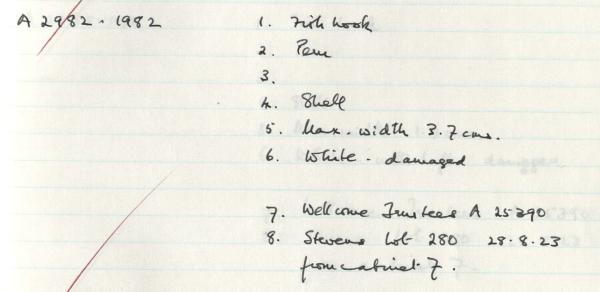 A 2982. 1982
1. Fish hook
2. Peru
3.
4. Shell
5. Max. width 3.7 cms.
6. White - damaged
7. Wellcome Trustees A 25390
8. Stevens Lot 280 28.8.23
from cabinet 7.